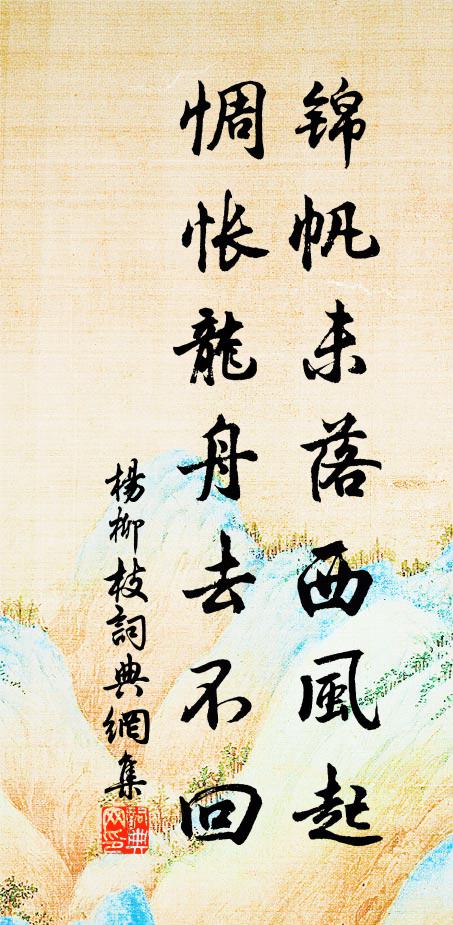 锦帆未落西風起
惆怅龍舟去不回
楊柳枝詞典網集
詞典網印